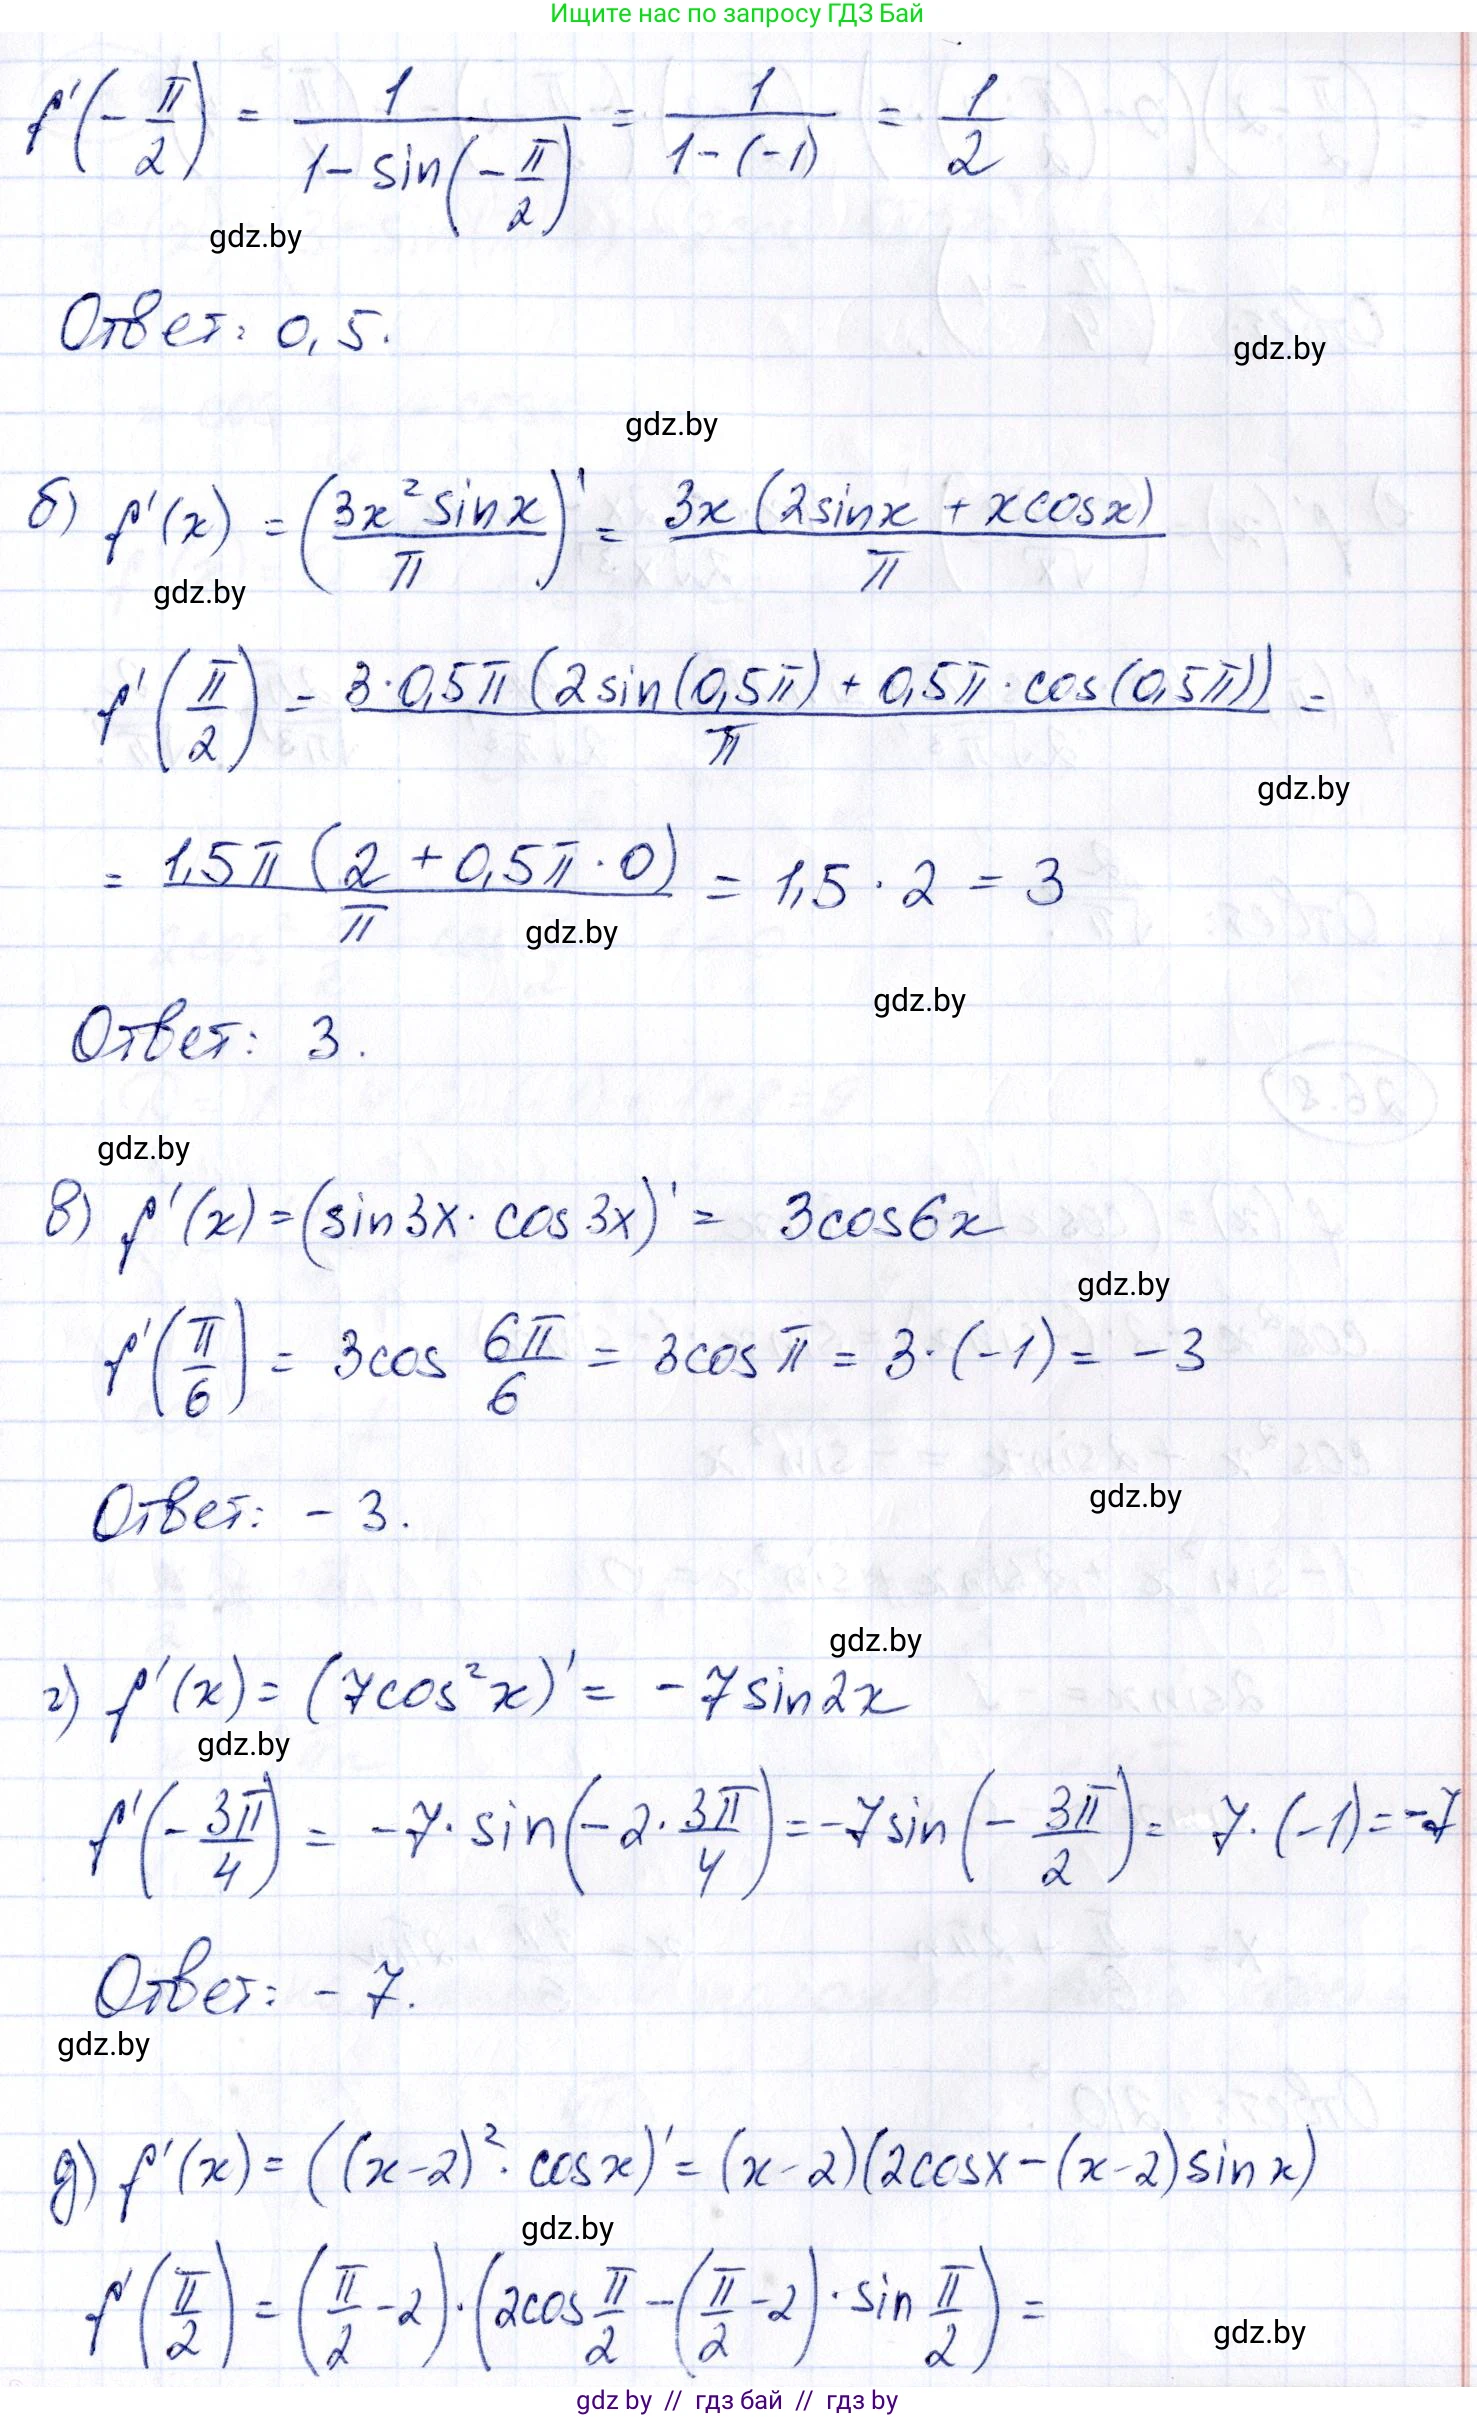 Ищите нас по запросу ГДЗ Бай
f'(-π/2) = 1/(1-sin(-π/2)) = 1/(1-(-1)) = 1/2
gdz.by
Ответ: 0,5.
gdz.by
gdz.by
б) f'(x) = (3x² sin x/π)' = 3x(2sinx + xcosx)/π
gdz.by
f'(π/2) = 3·0,5π(2sin(0,5π) + 0,5π·cos(0,5π))/π =
gdz.by
= 1,5π(2+0,5π·0)/π = 1,5·2 = 3
gdz.by
gdz.by
Ответ: 3.
gdz.by
в) f'(x) = (sin3x·cos3x)' = 3cos6x
gdz.by
f'(π/6) = 3cos 6π/6 = 3cosπ = 3·(-1) = -3
gdz.by
Ответ: -3.
gdz.by
г) f'(x) = (7cos²x)' = -7sin2x
gdz.by
f'(-3π/4) = -7·sin(-2·3π/4) = -7sin(-3π/2) = 7·(-1) = -7
Ответ: -7.
gdz.by
д) f'(x) = ((x-2)²·cosx)' = (x-2)(2cosx-(x-2)sinx)
gdz.by
f'(π/2) = (π/2-2)·(2cosπ/2-(π/2-2)·sin π/2) =
gdz.by
gdz by // гдз бай // гдз by